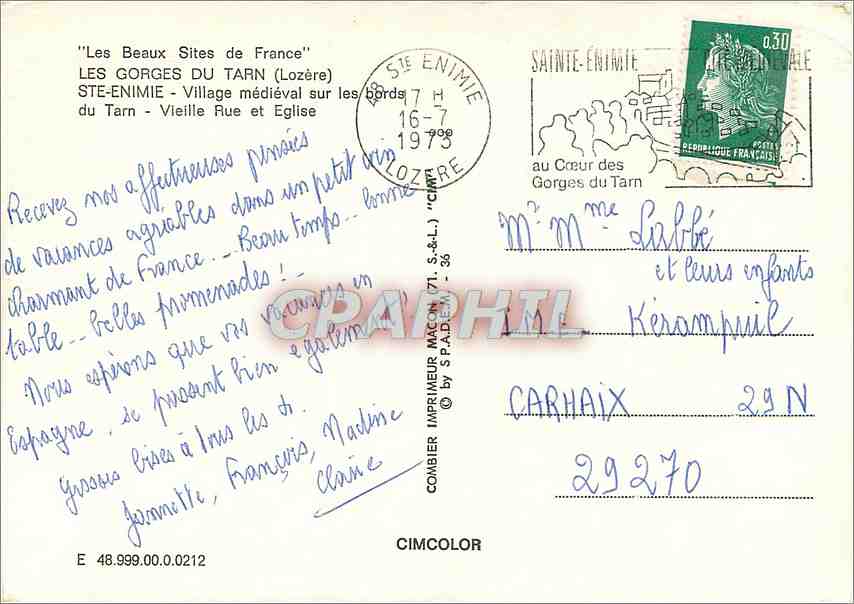 "Les Beaux Sites de France"
LES GORGES DU TARN (Lozère)
STE-ENIMIE - Village médiéval sur les bords
du Tarn - Vieille Rue et Eglise
48 STE ENIMIE
17 H
16-7
1973
LOZERE
SAINTE-ENIMIE CITE MEDIEVALE
au Cœur des
Gorges du Tarn
0,30
POSTES
REPUBLIQUE FRANÇAISE
Recevez nos affectueuses pensées
de vacances agréables dans un petit coin
charmant de France... Beau temps... bonne
table... belles promenades !..
Nous espérons que vos vacances en
Espagne, se passent bien également.
Grosses bises à tous les
Jeannette, François, Nadine
Claire
COMBIER IMPRIMEUR MACON (71. S.-&-L.) "CIM"
© by S P.A.D.E.M. - 36
CPAPHIL
Mr Mme Labbé
et leurs enfants
Kérampuil
CARHAIX 29N
29270
CIMCOLOR
E 48.999.00.0.0212